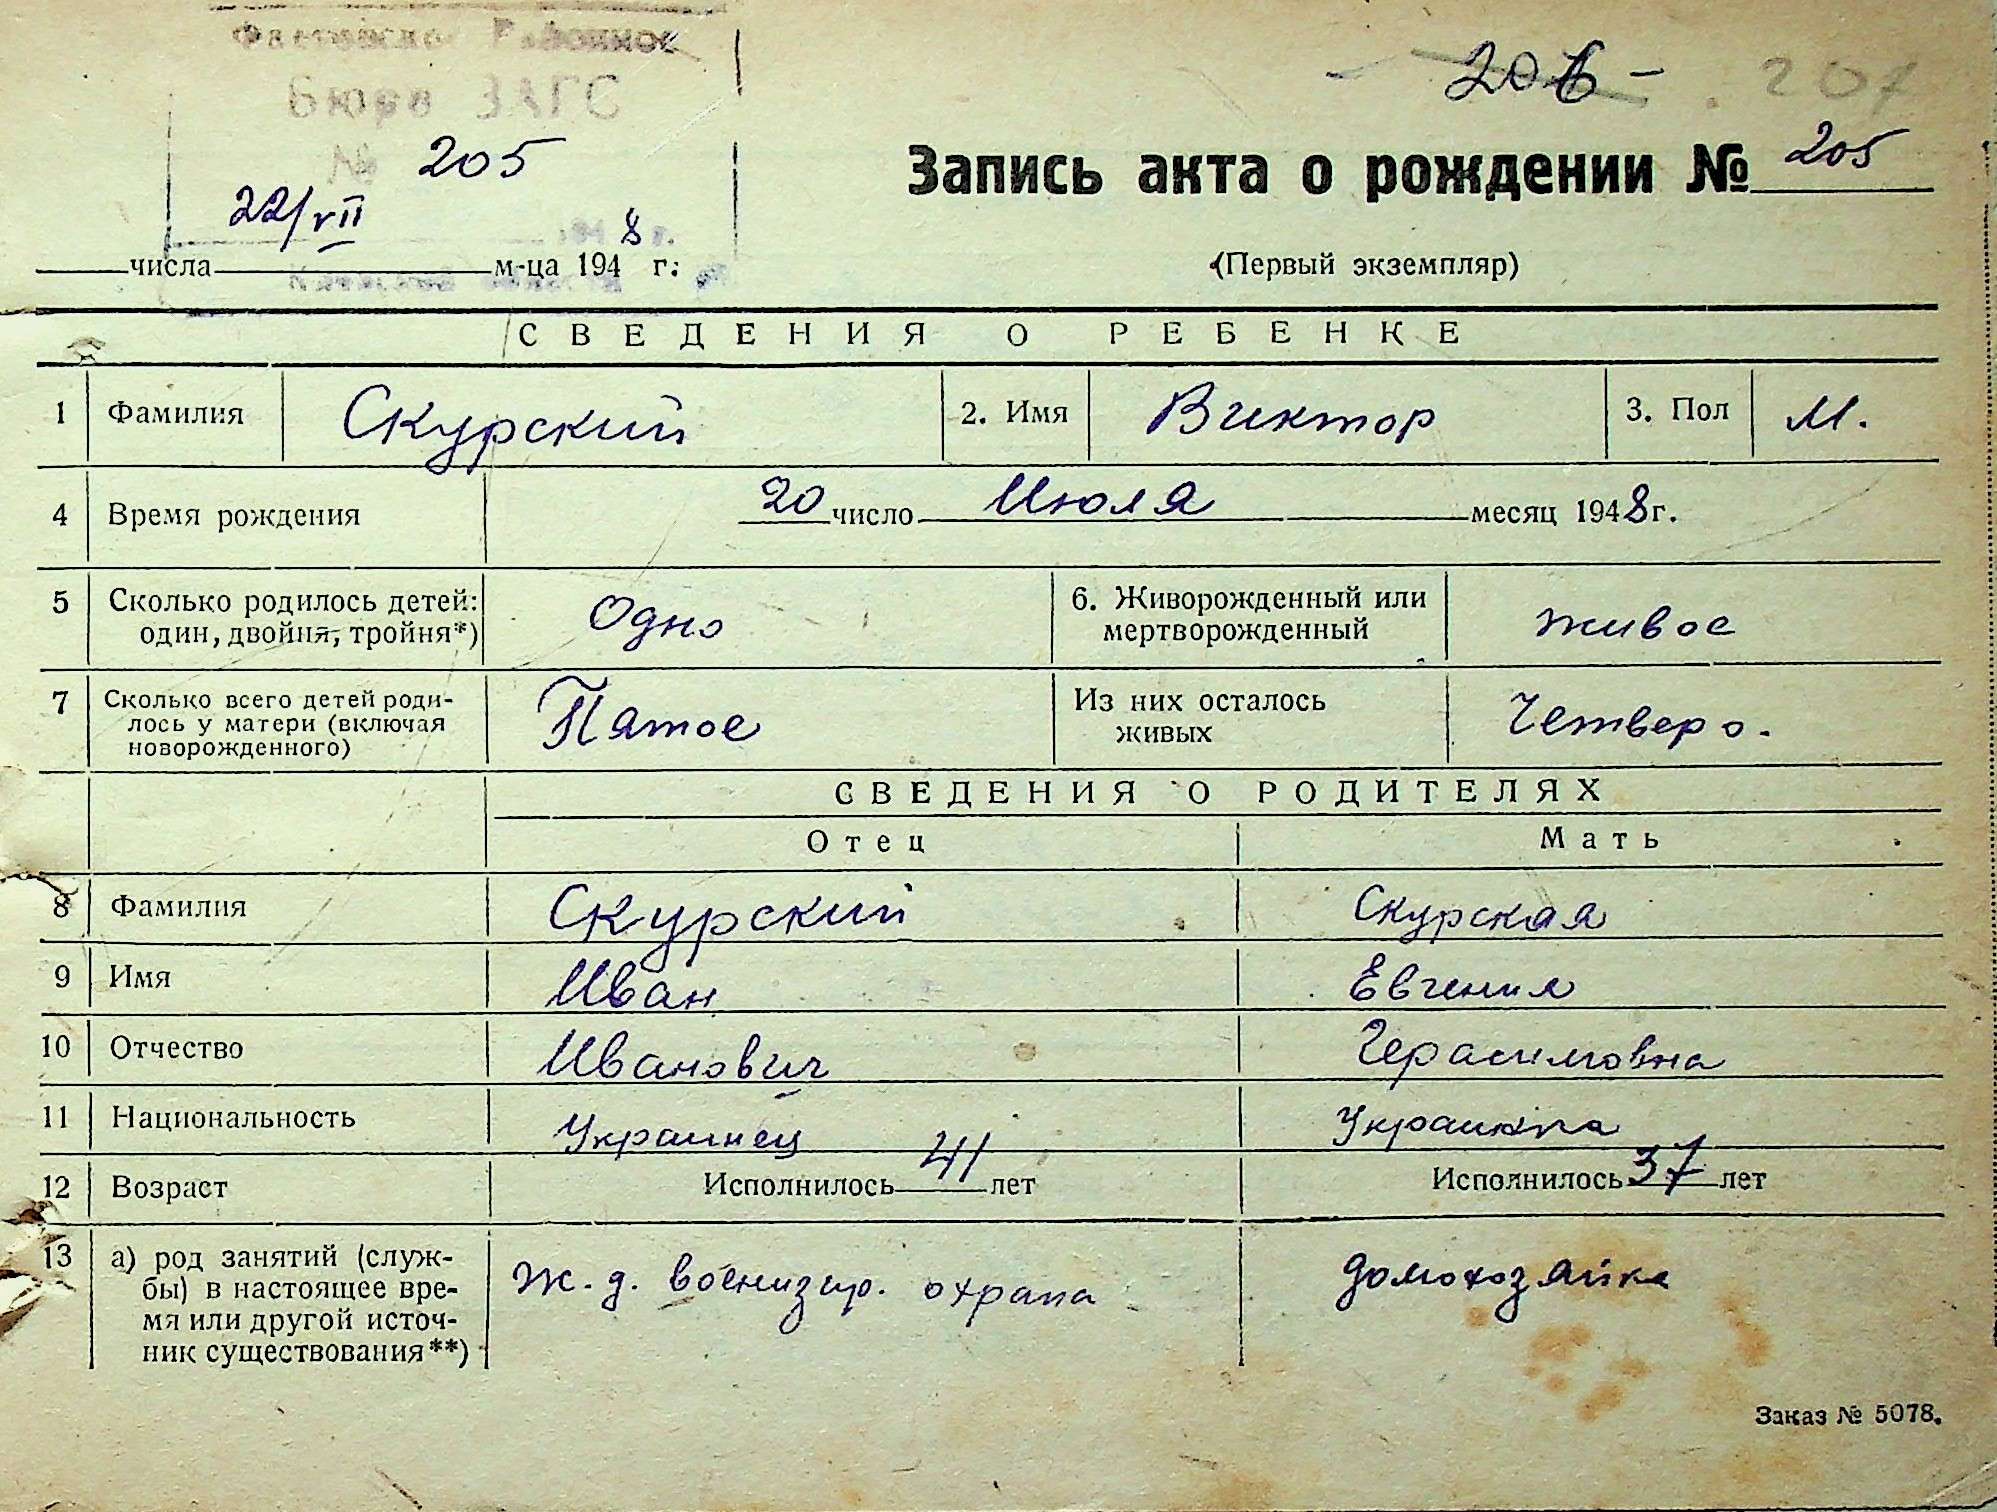 Фастовское Районное
Бюро ЗАГС
№ 205
22/VII 194 8 г.
Киевской области
- 206 - . 207
Запись акта о рождении № 205
числа м-ца 194 г.
(Первый экземпляр)
СВЕДЕНИЯ О РЕБЕНКЕ
1 Фамилия Скурский 2. Имя Виктор 3. Пол М.
4 Время рождения 20 число Июля месяц 1948 г.
5 Сколько родилось детей: один, двойня, тройня*) Одно 6. Живорожденный или мертворожденный живое
7 Сколько всего детей родилось у матери (включая новорожденного) Пятое Из них осталось живых Четверо.
СВЕДЕНИЯ О РОДИТЕЛЯХ
Отец Мать
8 Фамилия Скурский Скурская
9 Имя Иван Евгения
10 Отчество Иванович Герасимовна
11 Национальность Украинец Украинка
12 Возраст Исполнилось 41 лет Исполнилось 37 лет
13 а) род занятий (служ- Ж.д. военизир. охрана домохозяйка
бы) в настоящее вре-
мя или другой источ-
ник существования**)
Заказ № 5078.